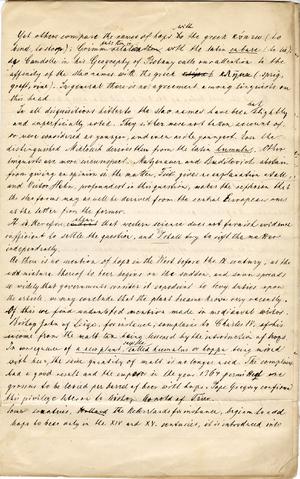 with
Yet others compare the name of hops to the greek
bind, to stoop); Grimm with the latin
Candolle in his Geography of Botany calls our attention to the
affinity of the slav names with the greek (sprig,
graft, vine). In general there is no agreement among linguists on
this head.
In all disquisitions hitherto the slav names have been slightly
and superficially noted. They either were not taken account of
or were considered as younger, and even as the youngest. Even the
distinguished Miklosich derives them from the latin humulus. Other
linguists are more circumspect. Matzenauer and Budilovich abstain
from giving an opinion in the matter, Fick gives no explanation at all,
and Victor Hehn, profoundest in this question, makes the assertion that
the slav forms may as well be derived from the central European ones
as the latter from the former.
It is therefore clear that western science does not furnish evidence
sufficient to settle the question, and I shall try to sift the matter
independently.
As there is no mention of hops in the West before the century, as the
admixture thereof to beer begins on the sudden, and soon spreads
so widely that governments consider it expedient to levy duties upon
the article, we may conclude that the plant became known very recently.
Of this we find unsatisfied mention made in mediaeval writers.
Bishop John of Liège, for instance, complains to Charles IV, of his
income from the malt tax being lessened by the introduction of hops
In consequence of a new plant, called humulus or hoppa being mixed
with beer, the same quantity of malt is no longer used. The complaint
had a good result and the emperor in the year 1364 permitted one
grossus to be levied per barrel of beer with hops. Pope Gregory confirms
this privilege likewise to bishop Arnold of Trier.
Some countries, the Netherlands for instance, begin to add
hops to beer only in the XIV and XV. centuries, it is introduced into